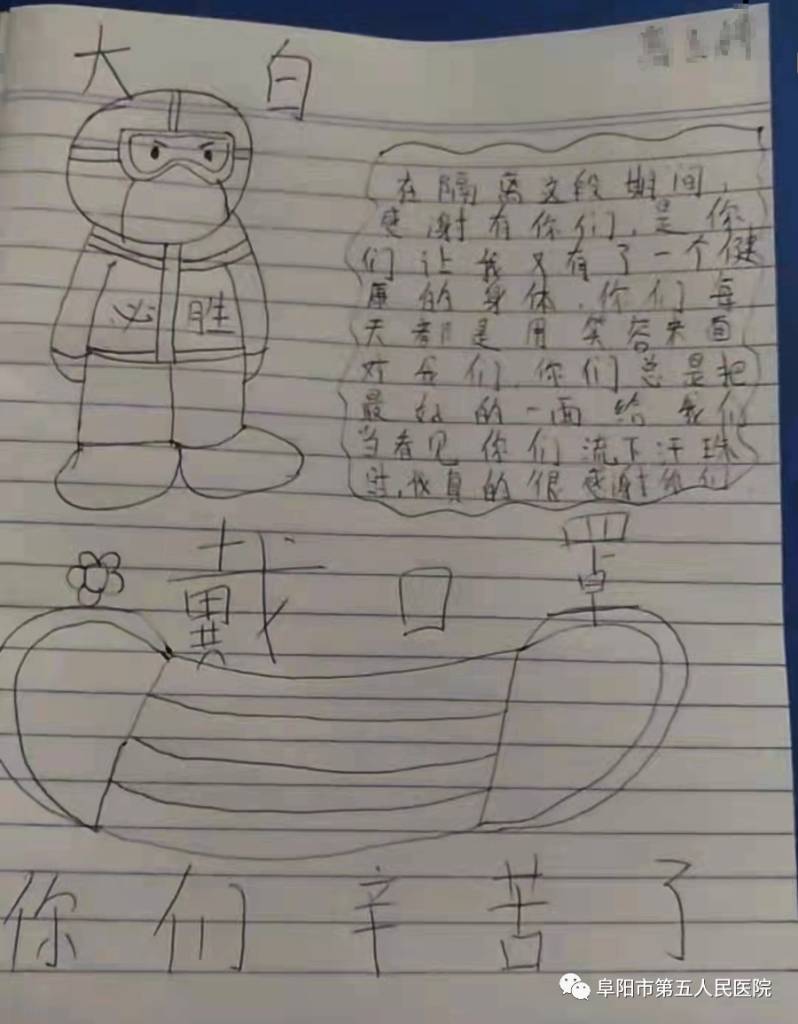 大白
必胜
在隔离这段期间，
感谢有你们，是你
们让我又有了一个健
康的身体，你们每
天都是用笑容来面
对我们，你们总是把
最好的一面给我们
当看见你们流下汗珠
时，我真的很感谢你们
戴口罩
你们辛苦了
阜阳市第五人民医院